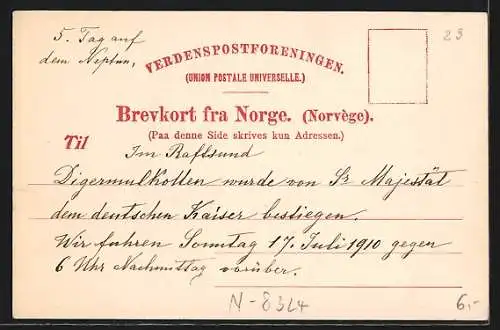 5. Tag auf
dem Neptun,
23
VERDENSPOSTFORENINGEN.
(UNION POSTALE UNIVERSELLE.)
Brevkort fra Norge. (Norvège).
(Paa denne Side skrives kun Adressen.)
Til
Im Raftsund
Digermulkollen wurde von Sr. Majestät
dem deutschen Kaiser bestiegen.
Wir fuhren Sonntag 17. Juli 1910 gegen
6 Uhr Nachmittag vorüber.
N-8324
6,-